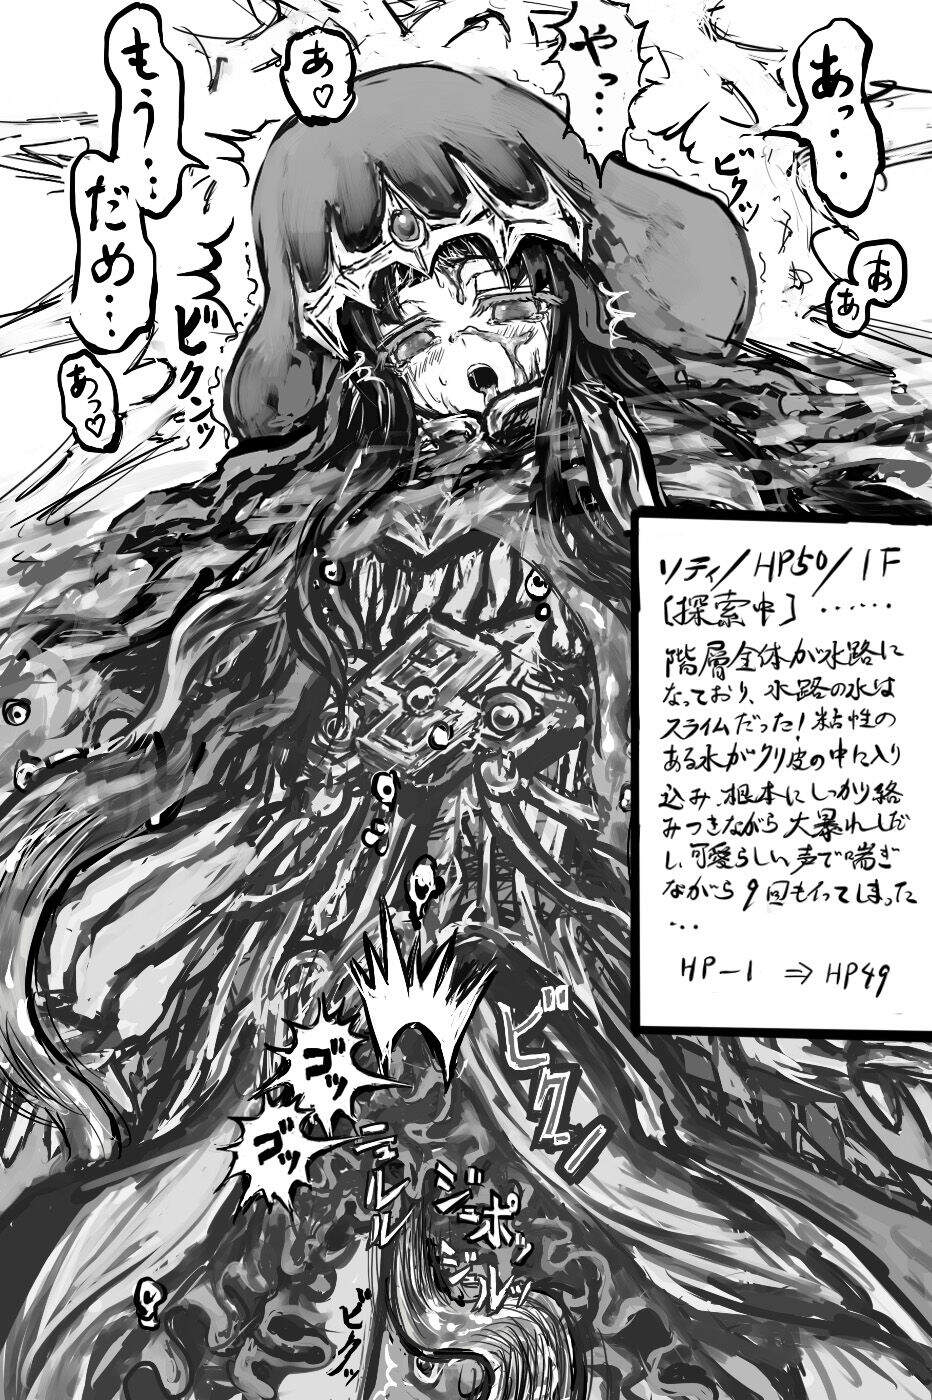 あっ…
やっ…
あ♡
もう…
だめ…
ビクッ
ああ
ビクンッ
あっ♡
ソティ/HP50/1F
[探索中]……
階層全体が水路に
なっており、水路の水は
スライムだった!粘性の
ある水がクリ皮の中に入り
込み、根本にしっかり絡
みつきながら大暴れしだ
し、可愛らしい声で喘ぎ
ながら9回もイってしまった
…
HP-1 ⇒ HP49
ビクンッ
ゴッ
ゴッ
ニュルルル
ジュポッ
ジュルッ
ビクッ